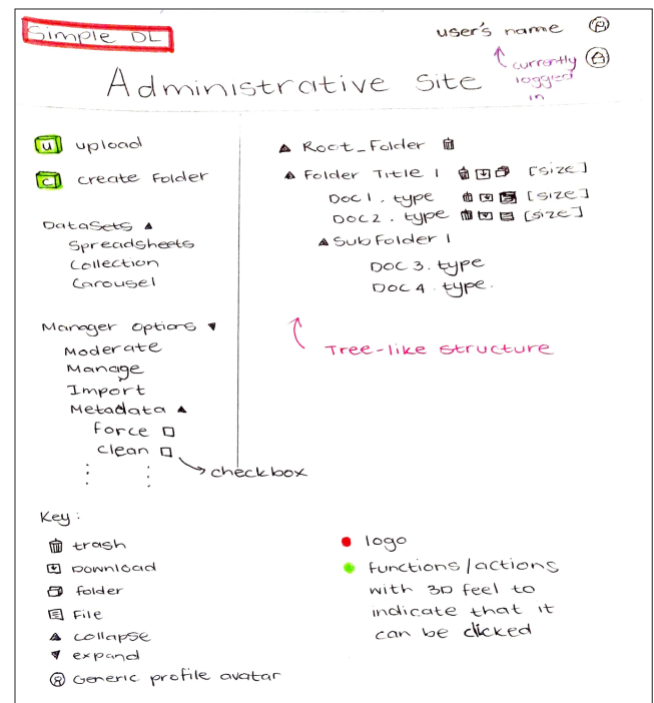 Simple DL
user's name
currently
logged
in
Administrative Site
U upload
C create Folder
DataSets
Spreadsheets
Collection
Carousel
Manager Options
Moderate
Manage
Import
Metadata
Force
clean
checkbox
Root_Folder
Folder Title 1 [size]
Doc1.type [size]
Doc2.type [size]
SubFolder 1
Doc 3.type
Doc 4.type.
Tree-like structure
Key:
trash
Download
folder
File
collapse
expand
Generic profile avatar
logo
functions/actions
with 3D feel to
indicate that it
can be clicked